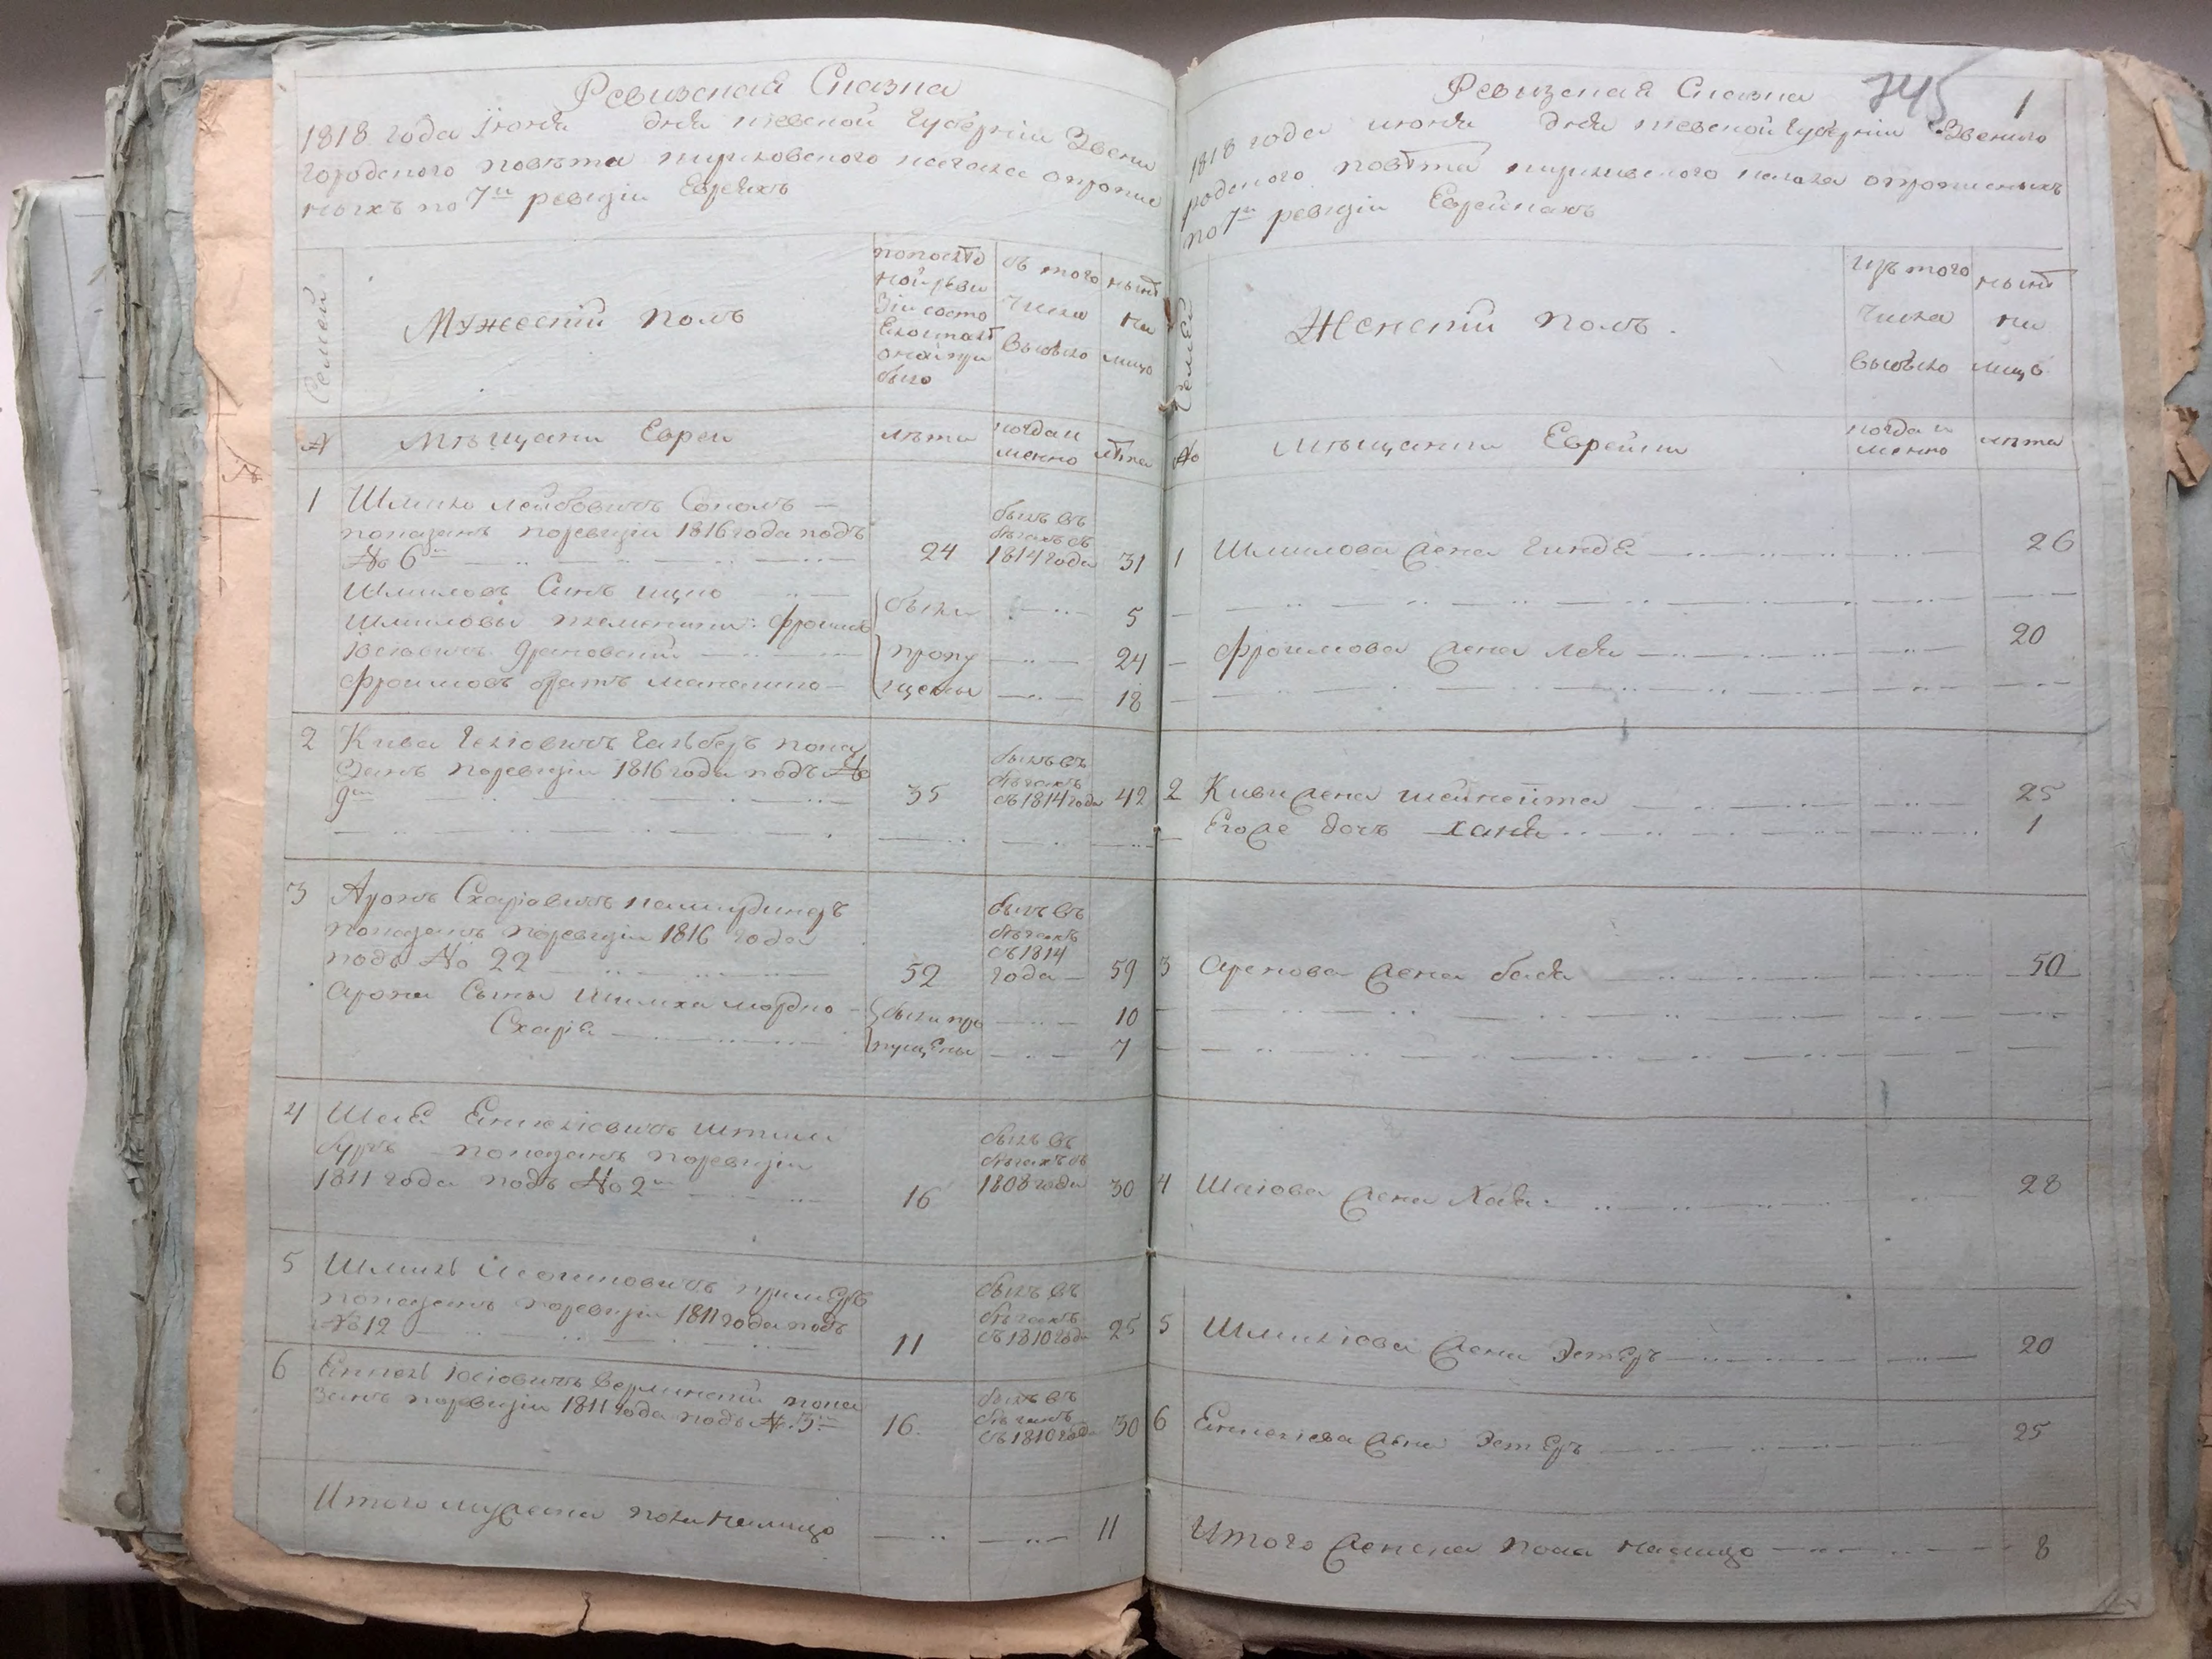 Ревизская Сказка
1818 года Іюня дня киевской Губерніи Звени
городского повѣта кирковского кагала опропис
ныхъ по 7й ревизіи Евреяхъ
Семей
Мужескій полъ
по послѣд
ной реви
зіи состо
было
съ того
числа
выбыло
нынѣ
на
лицо
№
Мѣщани Евреи
лѣта
когда и
менно
лѣта
1
Шлиома Лейбовичъ Соколъ —
показанъ по ревизіи 1816 года подъ
№ 6м
24
былъ въ
бѣгахъ съ
1814 года
31
Шлиомовъ Синъ ицко
были
5
Шлиомовы племеники: Фроимъ
Іосіовичъ Драновскій
пропу
24
Фроимовъ братъ
щены
18
2
Кива Гелзовичъ Галбѣръ пока
занъ по ревизіи 1816 года подъ №
9м
35
былъ въ
бѣгахъ
съ 1814 года
42
3
Аронъ Схаріовичъ
показанъ по ревизіи 1816 года
подъ № 22
52
былъ въ
бѣгахъ
съ 1814
года —
59
Арона Сыны Шлиома Мордко
были про
10
Схарія
пущены
7
4
Шаѣ Енкеліовичъ Штили
буръ показанъ по ревизіи
1811 года подъ № 2м
16
былъ въ
бѣгахъ съ
1808 года
30
5
показанъ по ревизіи 1811 года подъ
№ 12
11
былъ въ
бѣгахъ
съ 1810 года
25
6
Енкель Іосіовичъ Верлинскій пока
занъ по ревизіи 1811 года подъ № 5м
16
былъ въ
бѣгахъ
съ 1810 года
30
Итого мужеска пола налицо
11
745
1
Ревизская Сказка
1818 года июня дня киевской Губерніи Звениго
родского повѣта кирковского кагала опрописныхъ
по 7й ревизіи Еврейкахъ
Семей
Женскій полъ.
изъ того
числа
выбыло
нынѣ
на
лицо
№
Мѣщанки Еврейки
когда и
менно
лѣта
1
Шлиомова жена Гиндя
26
Фроимова жена Лея
20
2
Киви жена Шейнейта
25
Его же дочь ханя
1
3
Аронова жена бася
50
4
Шаіова жена Хая
28
5
Шлиоміова жена Эстеръ
20
6
Енкеліова жена Эстеръ
25
Итого женска пола налицо
8